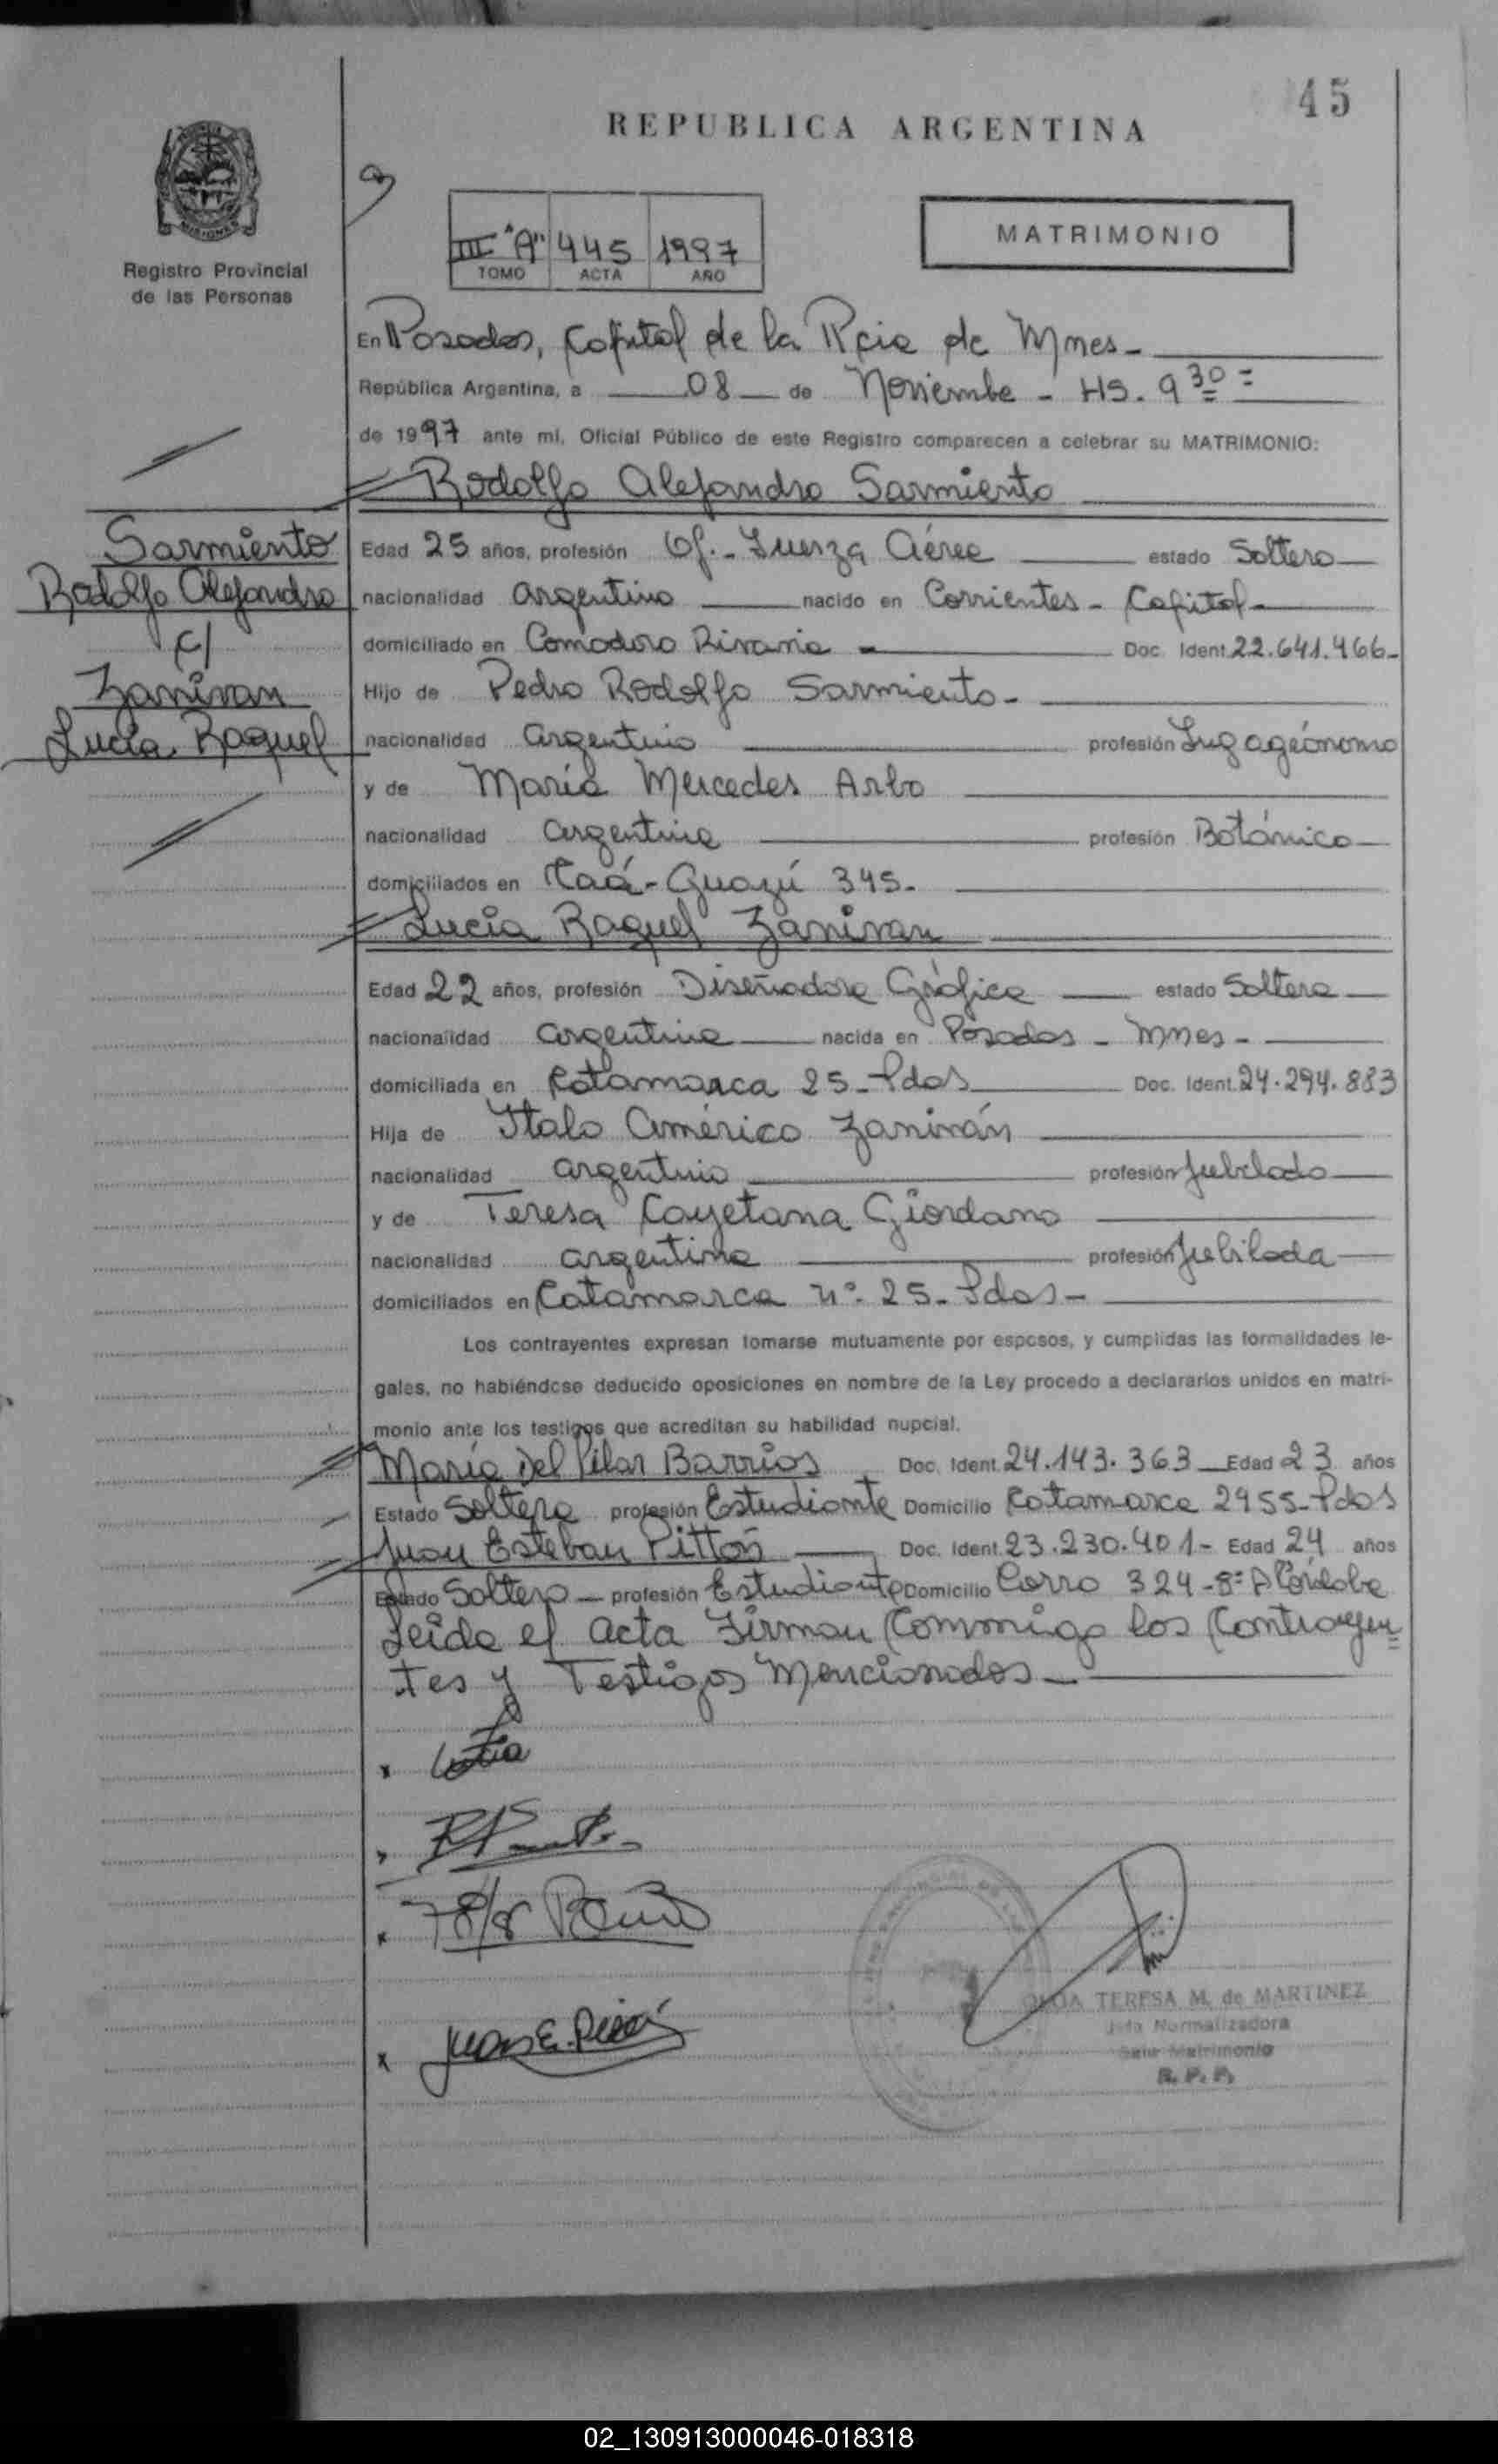 45
REPUBLICA ARGENTINA
MISIONES
Registro Provincial
de las Personas
III "A" 445 1997
TOMO ACTA AÑO
MATRIMONIO
En Posadas, Capital de la Pcia de Mnes -
República Argentina, a 08 de Noviembe - HS. 9 30 =
de 1997 ante mí, Oficial Público de este Registro comparecen a celebrar su MATRIMONIO:
Rodolfo Alejandro Sarmiento
Sarmiento
Rodolfo Alejandro
c/
Zanivan
Lucía Raquel
Edad 25 años, profesión Of. - Fuerza Aérea estado Soltero
nacionalidad argentino nacido en Corrientes - Capital -
domiciliado en Comodoro Rivavia - Doc. Ident. 22.641.466-
Hijo de Pedro Rodolfo Sarmiento -
nacionalidad argentino profesión Ing agrónomo
y de María Mercedes Arbo
nacionalidad argentina profesión Botánica
domiciliados en Caá-Guazú 345.
Lucía Raquel Zanivan
Edad 22 años, profesión Diseñadora Gráfica estado Soltera
nacionalidad argentina nacida en Posadas - Mnes -
domiciliada en Catamarca 25 - Pdas Doc. Ident. 24.294.883
Hija de Italo américo Zaniván
nacionalidad argentino profesión Jubilado
y de Teresa Cayetana Giordano
nacionalidad argentina profesión Jubilada
domiciliados en Catamarca nº 25 - Pdas -
Los contrayentes expresan tomarse mutuamente por esposos, y cumplidas las formalidades le-
gales, no habiéndose deducido oposiciones en nombre de la Ley procedo a declararlos unidos en matri-
monio ante los testigos que acreditan su habilidad nupcial.
María Del Pilar Barrios Doc. Ident. 24.143.363 Edad 23 años
Estado Soltera profesión Estudiante Domicilio Catamarca 2955 - Pdas
Juan Esteban Pittón Doc. Ident. 23.230.401 - Edad 24 años
Estado Soltero - profesión Estudiante Domicilio Corro 324 - 8º A Córdoba
Leida el acta Firman Conmigo los Contrayen
tes y Testigos Mencionados -
TERESA M. de MARTINEZ
Jefa Normalizadora
Matrimonio
R. P. P.
02_130913000046-018318